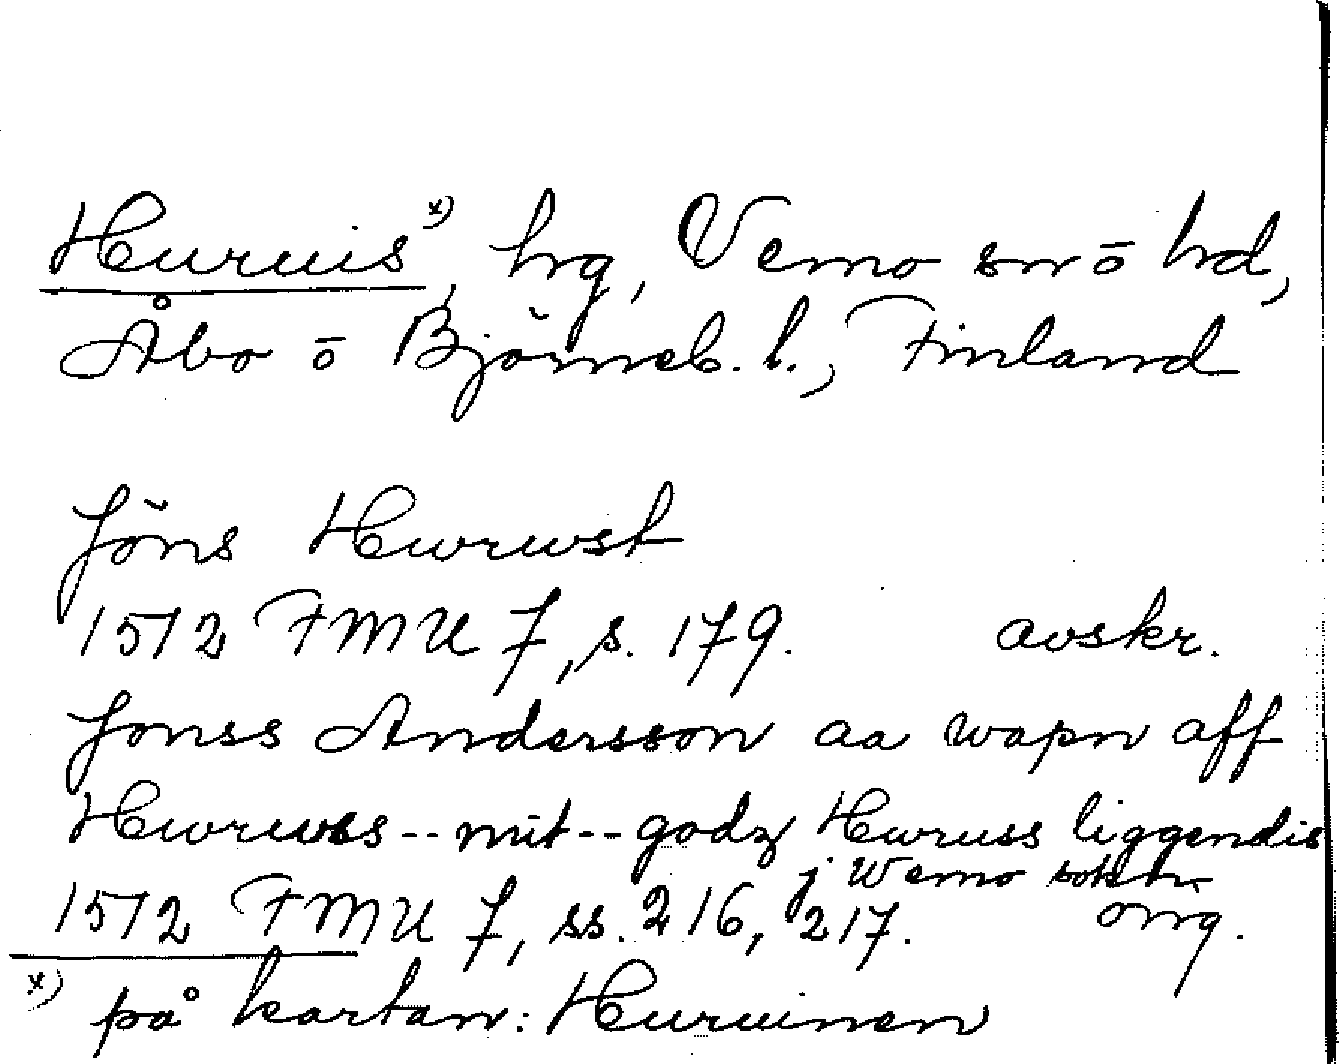 Huruis x), hrg, Vemo sn ō hd,
Åbo ō Björneb. l., Finland
Jöns Hwrwst
1512 FMU 7, s. 179. avskr.
Jonss Andersson aa wapn aff
Hwrwes -- mit -- godz Hwruss liggendis
j Wemo sokn
1512 FMU 7, ss. 216, 217. orig.
x) på kartan: Huruinen